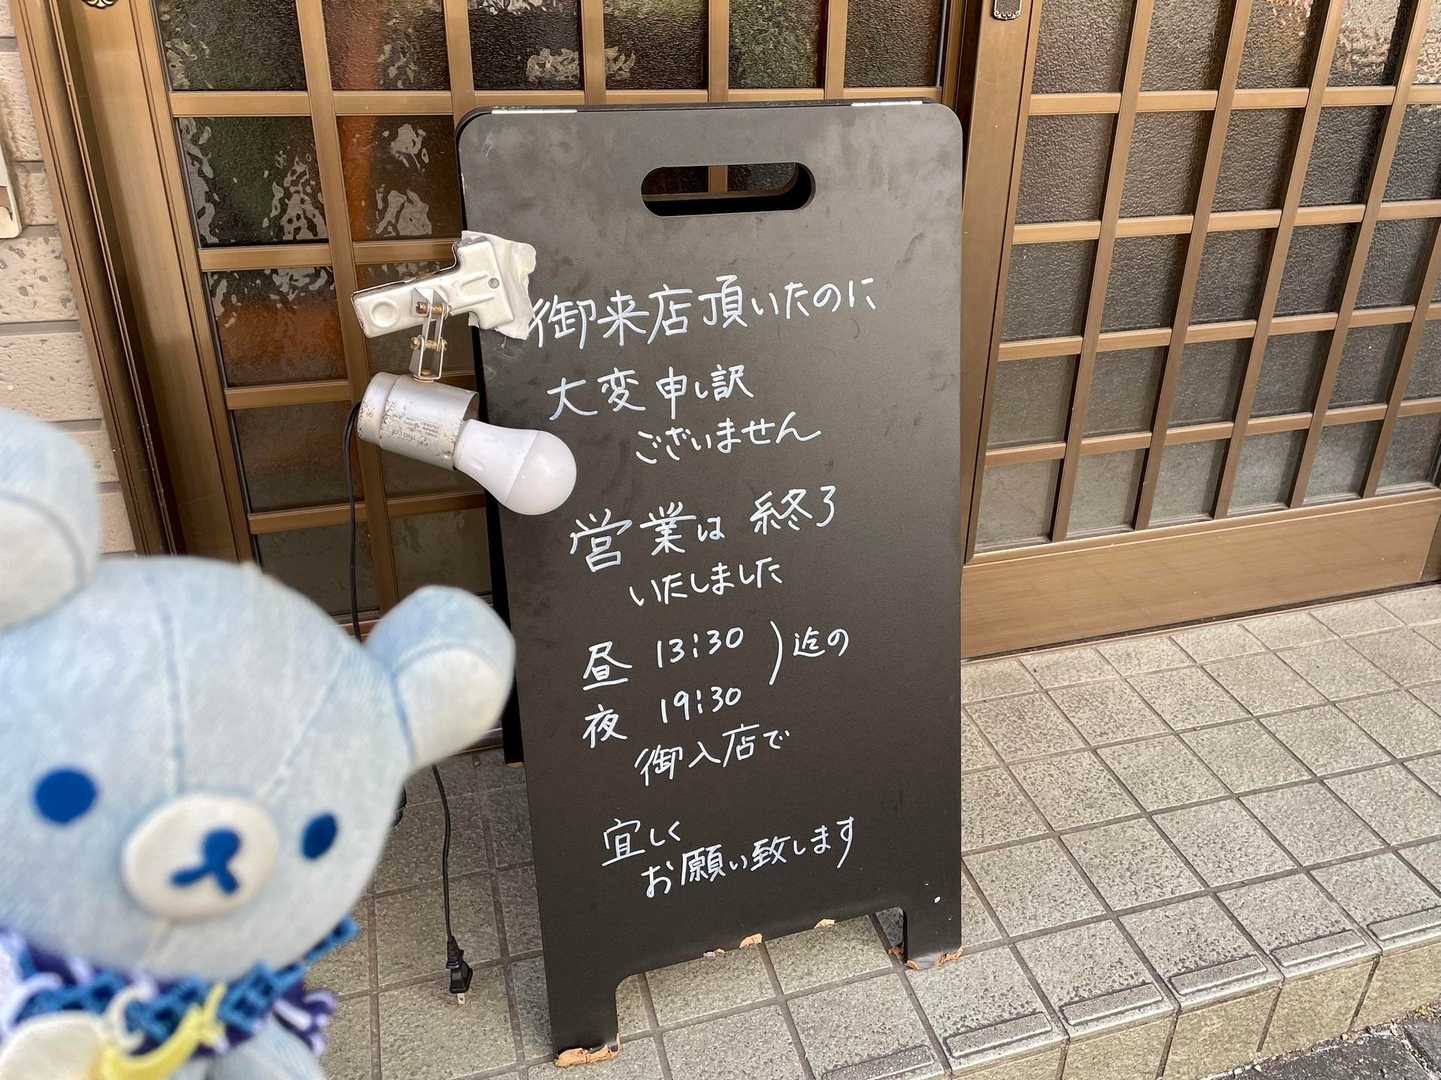 御来店頂いたのに
大変申し訳
ございません
営業は終了
いたしました
昼 13:30 )迄の
夜 19:30
御入店で
宜しく
お願い致します